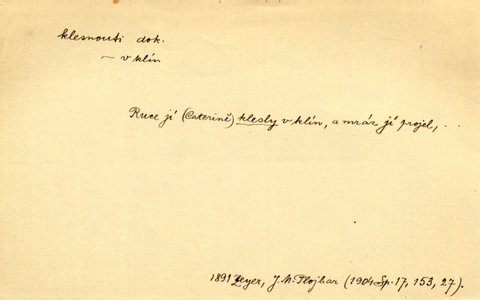 klesnouti dok.
— v klín
Ruce jí (Caterině) klesly v klín, a mráz jí projel, ..
1891 Zeyer, J. M. Plojhar (1904 Sp. 17, 153, 27).